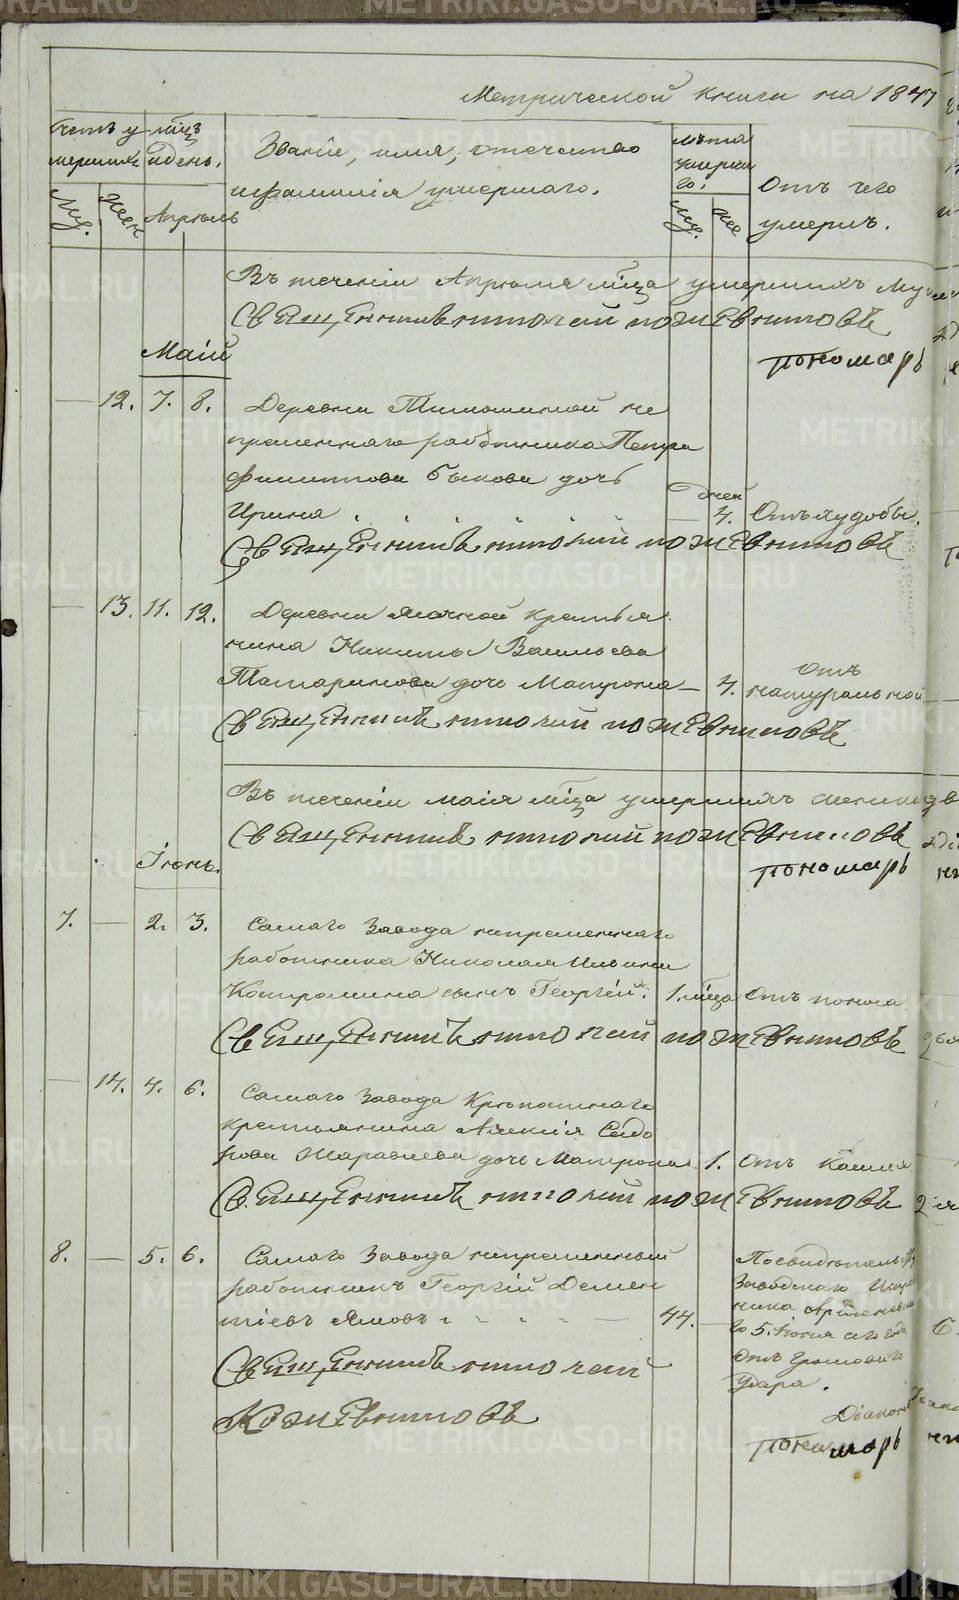 METRIKI.GASO-URAL.RU
Метрической книги на 1847
Счетъ у-
мершихъ
Муж.
Жен.
мѣцъ
и день.
Апрѣль
Званіе, имя, отечество
и фамилія умершаго.
лѣта
умерша
го.
Му.
Же.
Отъ чего
умеръ.
Въ теченіи Апрѣля мѣца умершихъ
Священникъ Николай Кожевниковъ
пономарь
Маій
12. 7. 8. Деревни Тимошиной не
премѣннаго работника Петра
Филиппова Быкова дочь
Ирина . . . . . дней 4. Отъ худобы.
Священникъ Николай Кожевниковъ
13. 11. 12. Деревни Ялочной крестья
нина Никиты Васильева
Татаринова дочь Матрона — 4. отъ натуральной
Священникъ Николай Кожевниковъ
Въ теченіи маія мѣца умершихъ женска
Священникъ Николай Кожевниковъ
пономарь
Іюнь.
7. — 2. 3. Самаго Завода непремѣннаго
работника Николая Ильина
Костромина сынъ Георгій. 1. мѣца Отъ поноса
Священникъ Николай Кожевниковъ
— 14. 4. 6. Самаго Завода Крѣпостнаго
крестьянина Алексія Сидо
рова Жаравлева дочь Матрона 1. Отъ Кашля
Священникъ Николай Кожевниковъ
8. — 5. 6. Самаго Завода непремѣнный
работникъ Георгій Демен
тіевъ Ямовъ 44. —
По свидѣтельству
Заводскаго Исправ
ника
5. Іюня сего года
Отъ Громоваго
Удара.
Священникъ Николай
Кожевниковъ
Діаконъ
пономарь